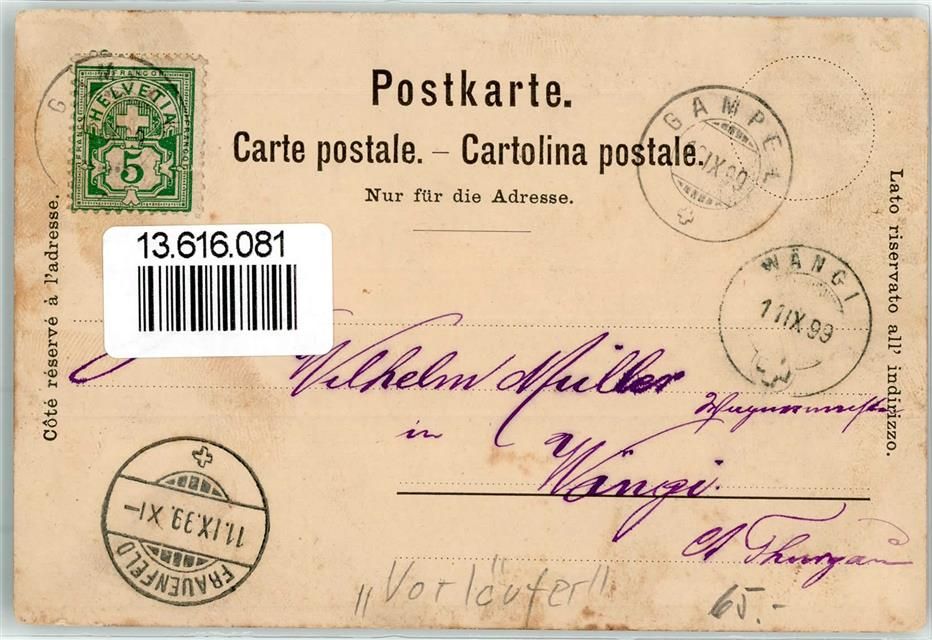 Postkarte.
Carte postale. – Cartolina postale.
Nur für die Adresse.
FRANCO
HELVETIA
FRANCO
FRANCO
5
G
GAMPEL
IX 99
WÄNGI
11 IX 99
13.616.081
Côté réservé à l'adresse.
Lato riservato all' indirizzo.
Wilhelm Müller
Wagnermeister
in
Wängi.
Ct Thurgau
11.IX.99.XI–
FRAUENFELD
„Vorläufer"
65.-